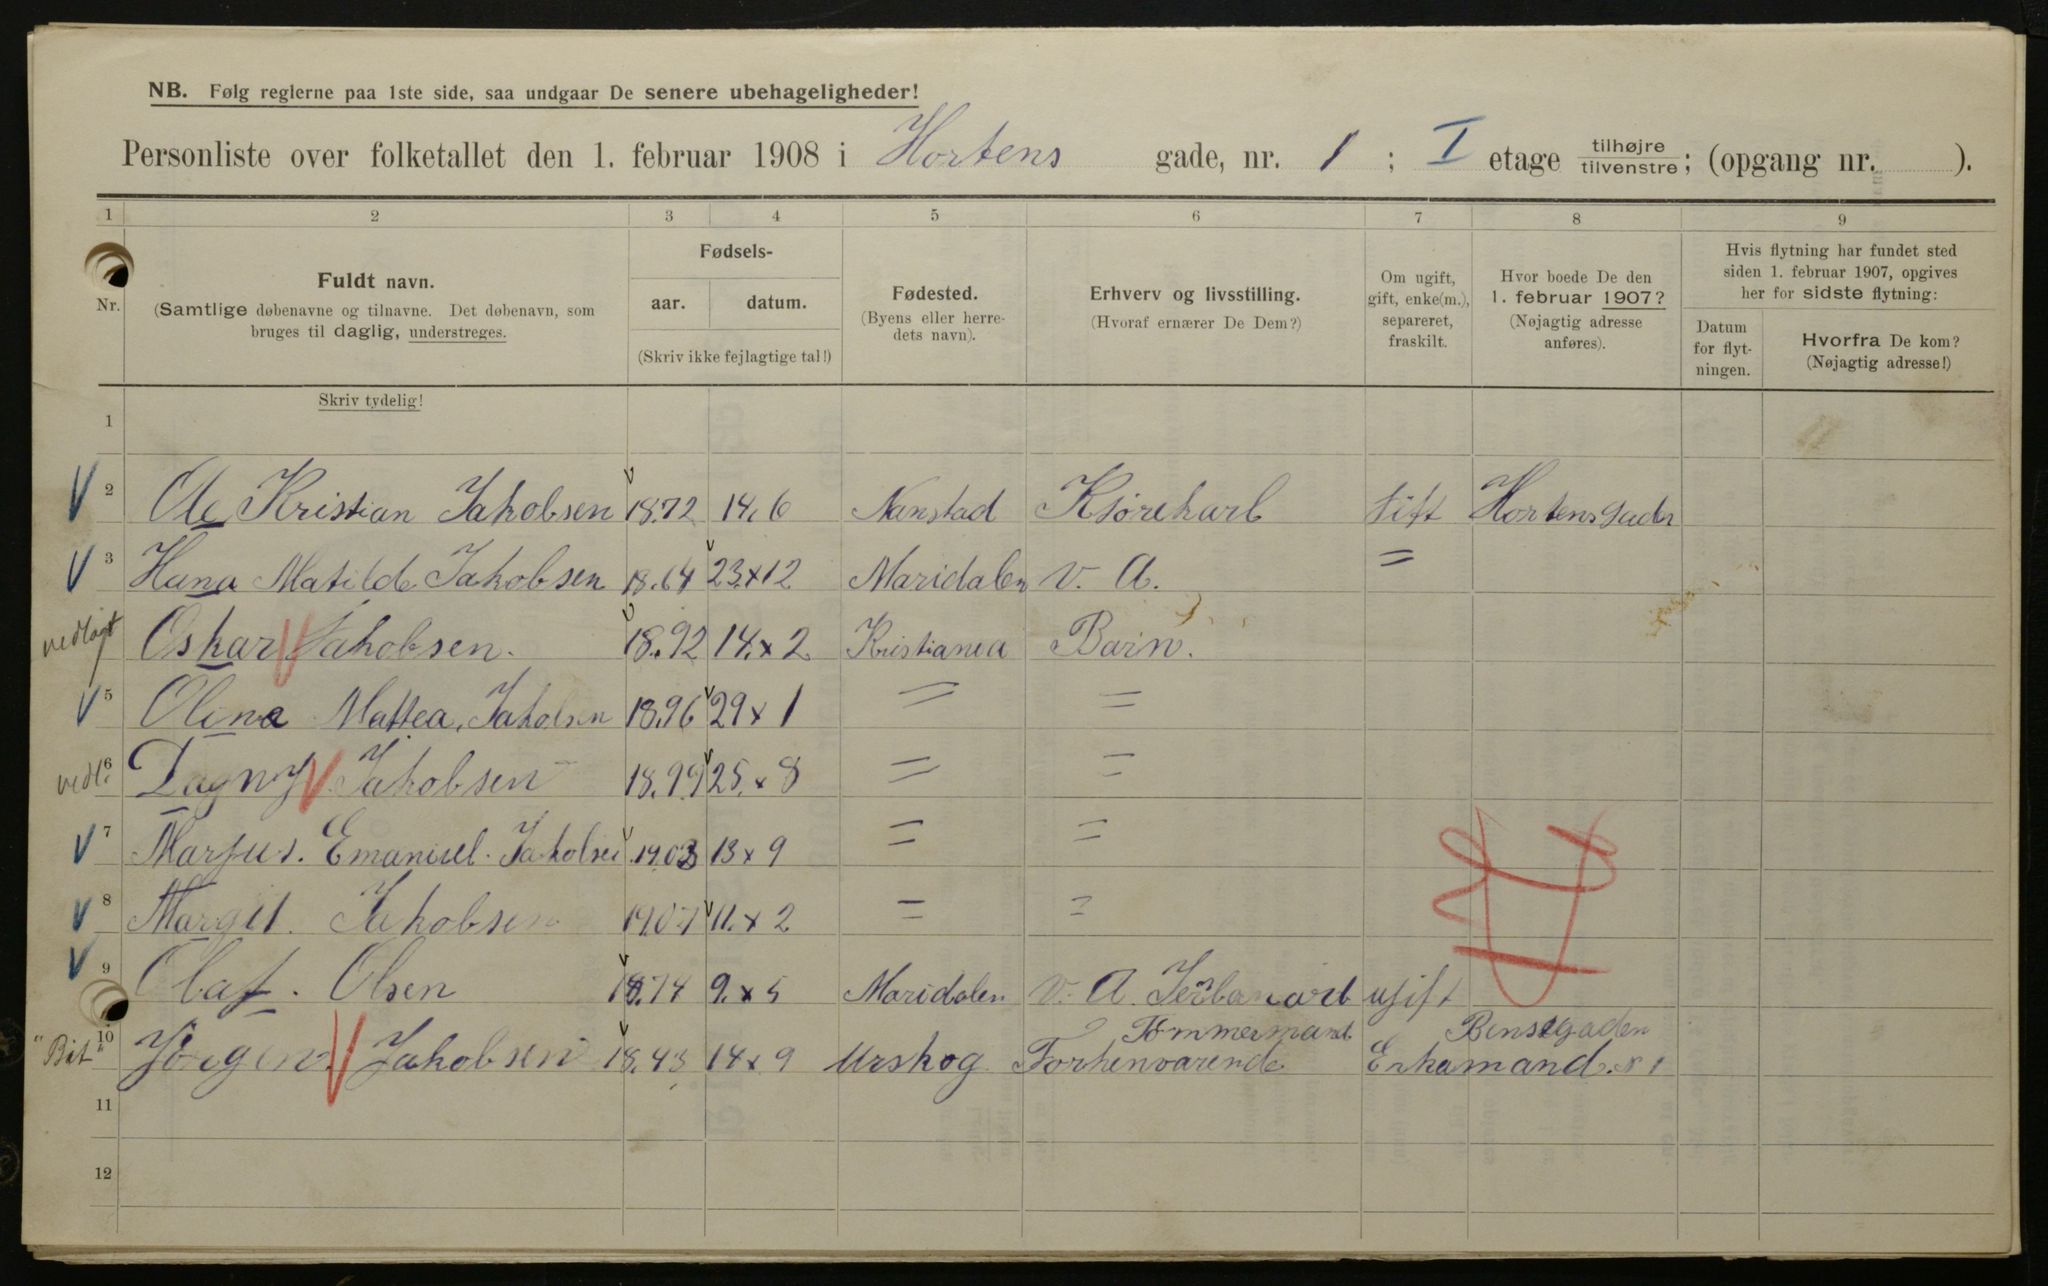 NB. Følg reglerne paa 1ste side, saa undgaar De senere ubehageligheder!
Personliste over folketallet den 1. februar 1908 i Hortens gade, nr. 1 ; I etage tilhøjre tilvenstre; (opgang nr. ).
1 2 3 4 5 6 7 8 9
Nr.
Fuldt navn.
(Samtlige døbenavne og tilnavne. Det døbenavn, som
bruges til daglig, understreges.
Skriv tydelig!
Fødsels-
aar. datum.
(Skriv ikke fejlagtige tal!)
Fødested.
(Byens eller herre-
dets navn).
Erhverv og livsstilling.
(Hvoraf ernærer De Dem?)
Om ugift,
gift, enke(m.),
separeret,
fraskilt.
Hvor boede De den
1. februar 1907?
(Nøjagtig adresse
anføres).
Hvis flytning har fundet sted
siden 1. februar 1907, opgives
her for sidste flytning:
Datum
for flyt-
ningen.
Hvorfra De kom?
(Nøjagtig adresse!)
1
V 2 Ole Kristian Jakobsen 18.72 14.6 Nanstad Kjørekarl Gift Hortensgaden
V 3 Hana Matilde Jakobsen 18.64 23x12 Maridalen V. A. =
vedlagt Oskar V Jakobsen. 18.92 14.x2 Kristiania Barn.
V 5 Oline Mattea. Jakobsen 18.96 29x1 = =
vedl. 6 Dagny V Jakobsen 18.99 25.x8 = =
V 7 Marjus. Emanuel. Jakobsen 19.03 13x9 = =
V 8 Margit. Jakobsen 19.07 11.x2 = =
V 9 Olaf. Olsen 18.74 9.x5 Maridalen V. A. Jerbanarb ugift
Tømmermand Bensegaden
"Bit" 10 Jörgen. V Jakobsen 18.43 14x9 Urskog Forhenvarende Enkamand. N 1
11
12